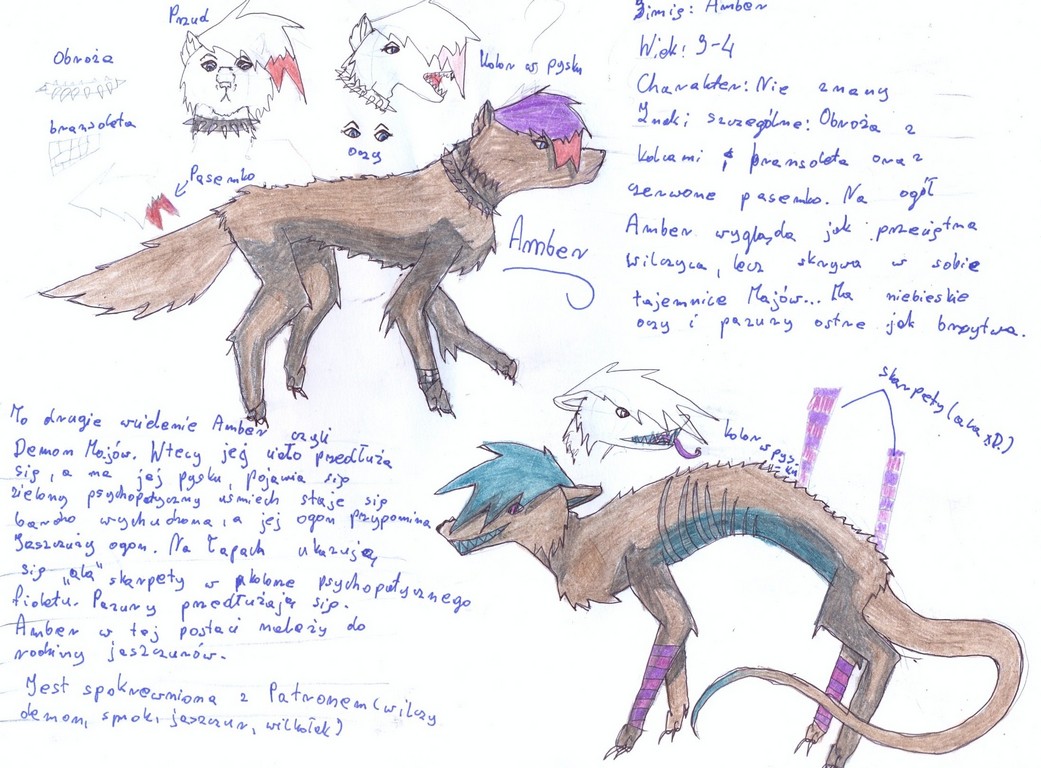 Przód
Obroża
bransoleta
Pasemko
Oczy
Kolor w pysku
Amber
Zimię: Amber
Wiek: 3-4
Charakter: Nie znany
Znaki szczególne: Obroża z
kolcami i bransoleta oraz
czerwone pasemko. Na ogół
Amber wygląda jak przeciętna
wilczyca, lecz skrywa w sobie
tajemnice Majów... Ma niebieskie
oczy i pazury ostre jak brzytwa.
skarpety (ala xD)
kolor w pysku
To drugie wcielenie Amber czyli
Demon Majów. Wtecy jej ciało przedłuża
się, a na jej pysku, pojawia się
zielony psychopatyczny uśmiech staje się
bardzo wychudzona, a jej ogon przypomina
Jaszczurzy ogon. Na Łapach ukazują
się "ala" skarpety w kolorze psychopatycznego
fioletu. Pazury przedłużają się.
Amber w tej postaci należy do
rodziny jaszczurów.
Jest spokrewniona z Patronem (wilczy
demon, smok, jaszczur, wilkołek)